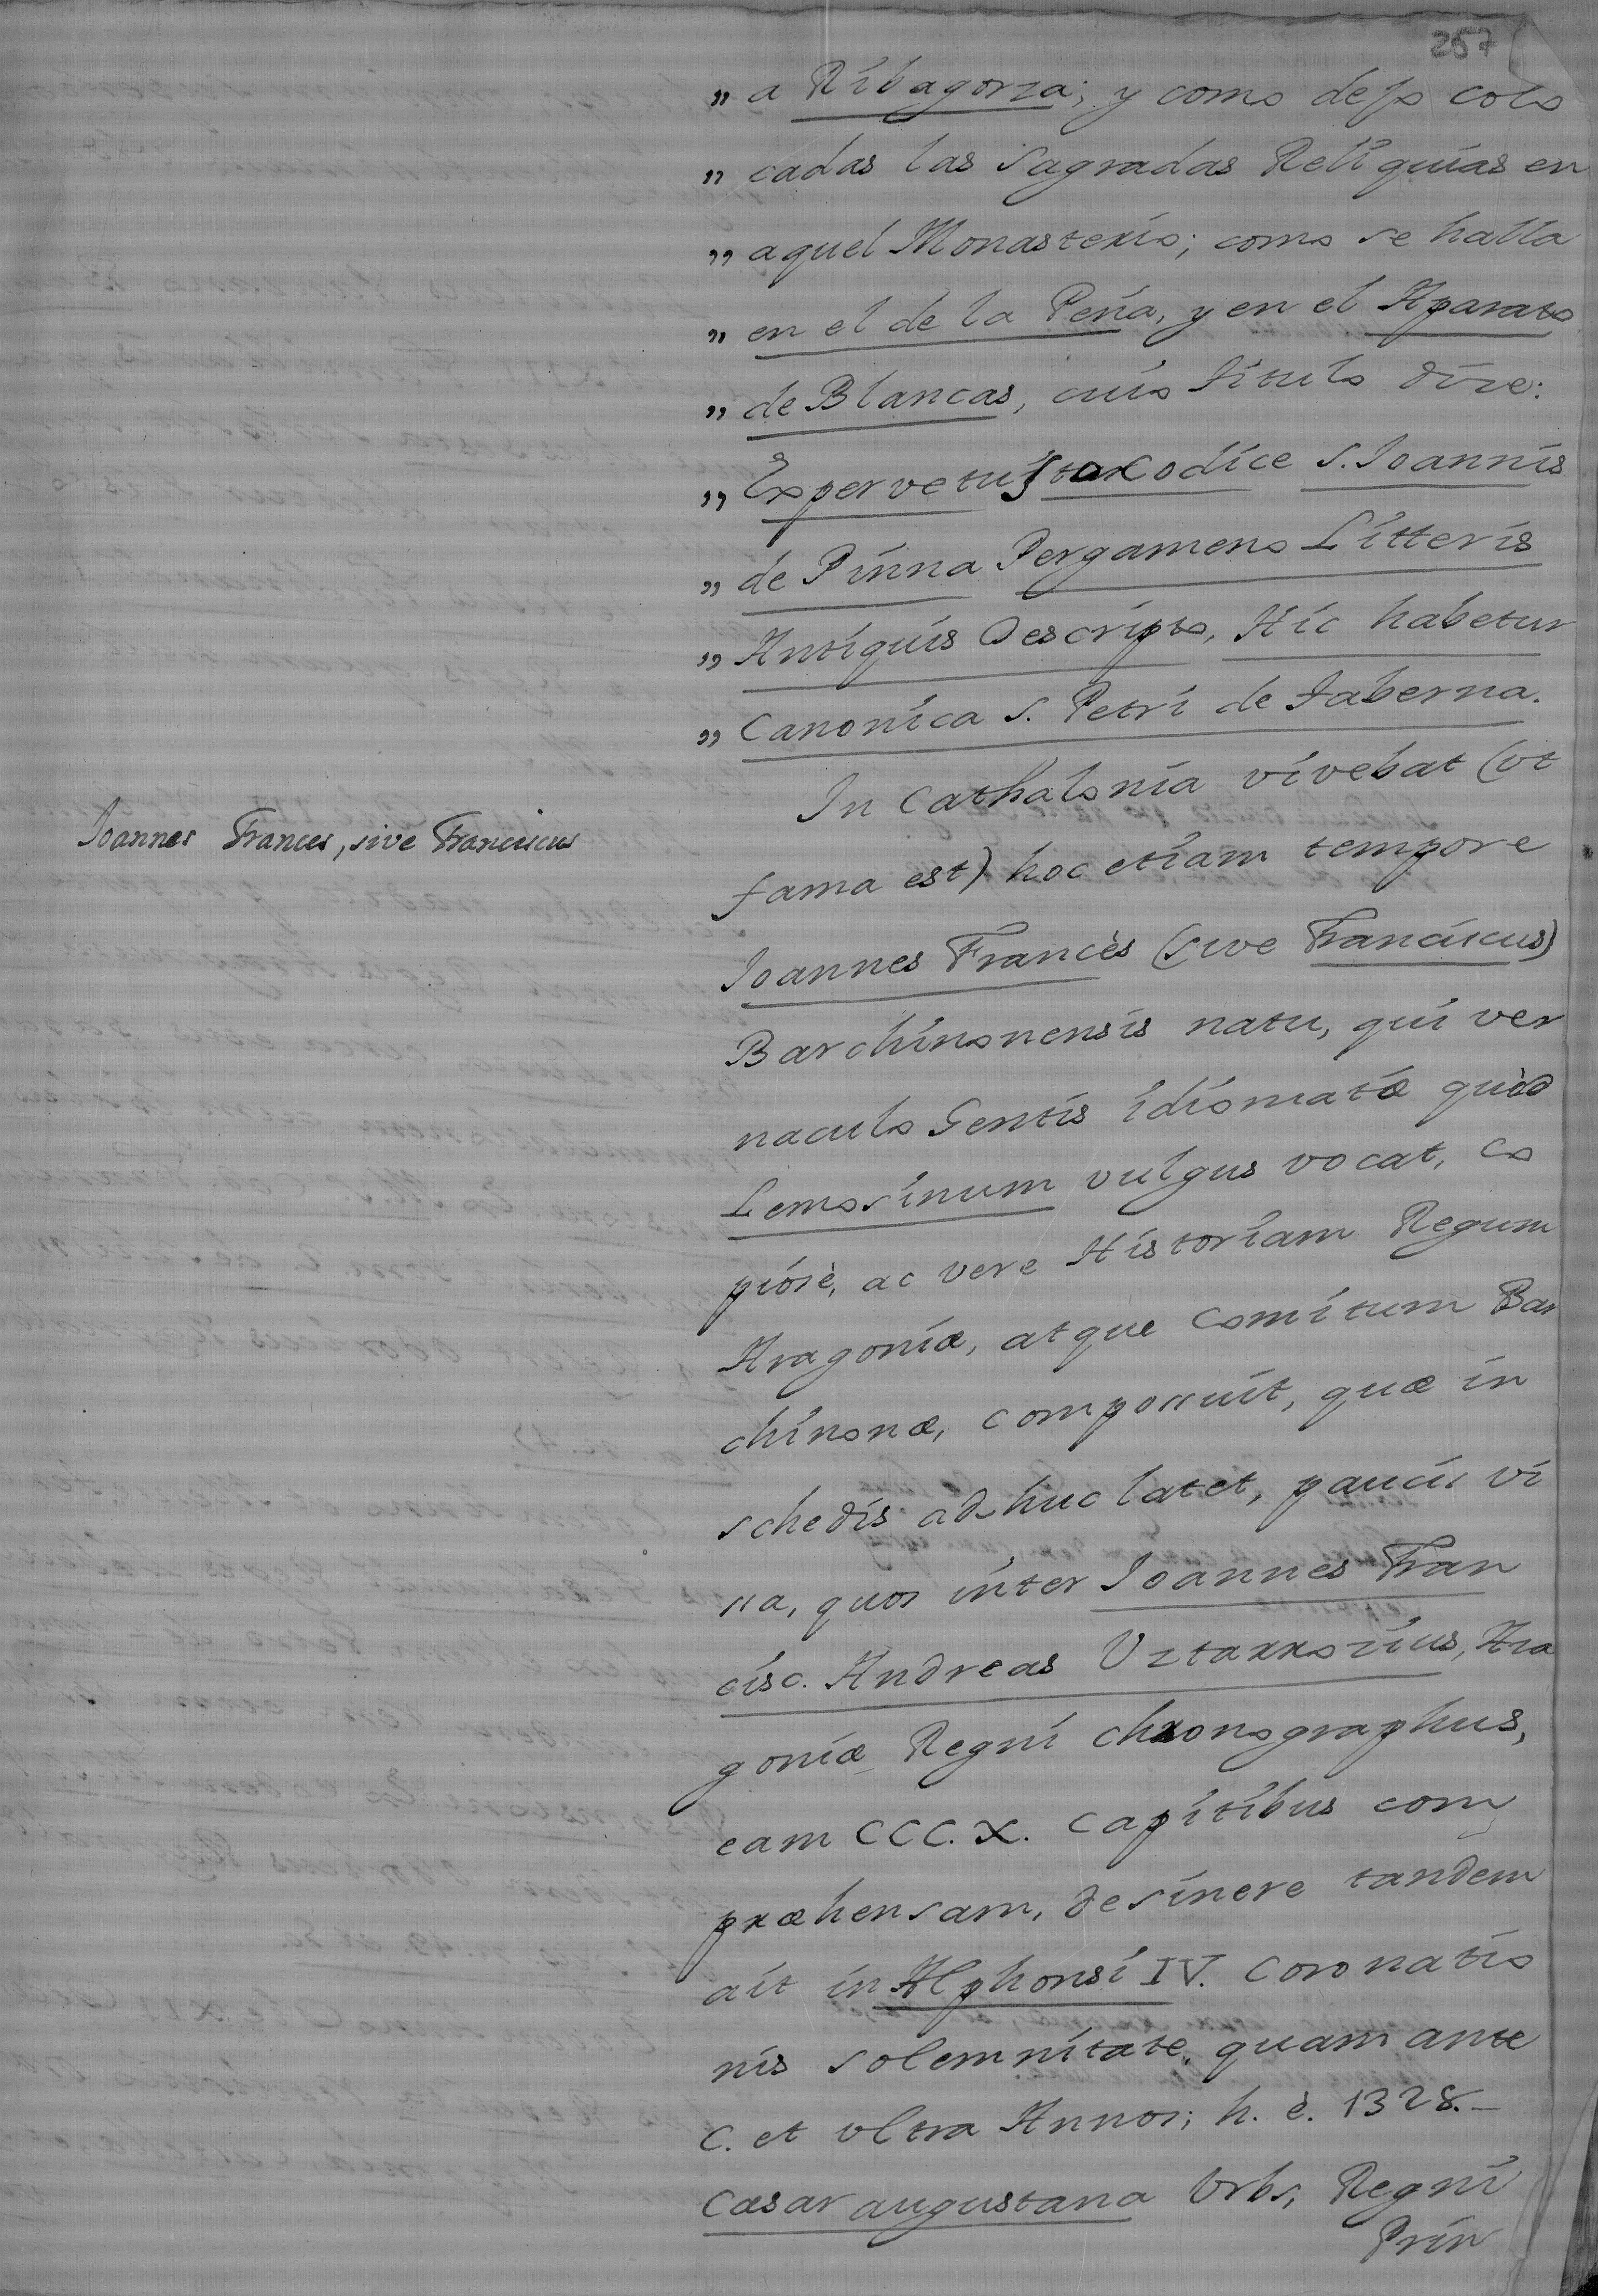 257
„ a Ribagorza; y como dejo colo
„ cadas las sagradas Reliquias en
„ aquel Monasterio; como se halla
„ en el de la Peña, y en el Aparato
„ de Blancas, cuio titulo dize:
„ Expervetustoxcodice S. Ioannis
„ de Pinna Pergameno Litteris
„ Antiquis Descripto, Hic habetur
„ Canonica S. Petri de Taberna.
In Cathalonia vivebat (vt
Joannes Frances, sive Franciscus
fama est) hoc etiam tempore
Joannes Francès (sive Franciscus)
Barchinonensis natu, qui ver
naculo Gentis idiomatæ quòd
Lemosinum vulgus vocat, co
piosè, ac vere Historiam Regum
Aragoniæ, atque Comitum Bar
chinonæ, compossuit, quæ in
schedis ad-huc latet, paucis vi
ssa, quos inter Ioannes Fran
cisc. Andreas Vztarrozius, Ara
goniæ Regni chronographus,
eam CCC.X. Capitibus com
præhensam, desinere tandem
ait in Alphonsi IV. Coronatio
nis solemnitate, quam ante
C. et vltra Annos; h. è. 1328.-
Cæsaraugustana Vrbs, Regni
Prin